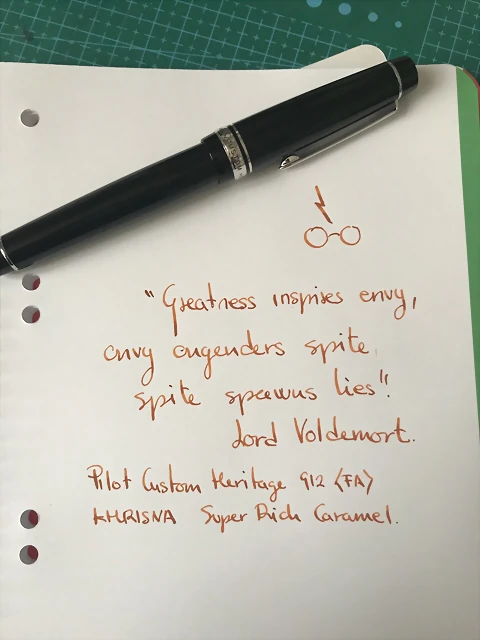 "Greatness inspires envy,
envy engenders spite,
spite spawns lies".
Lord Voldemort.
Pilot Custom Heritage 912 <FA>
KHRISNA Super Rich Caramel.